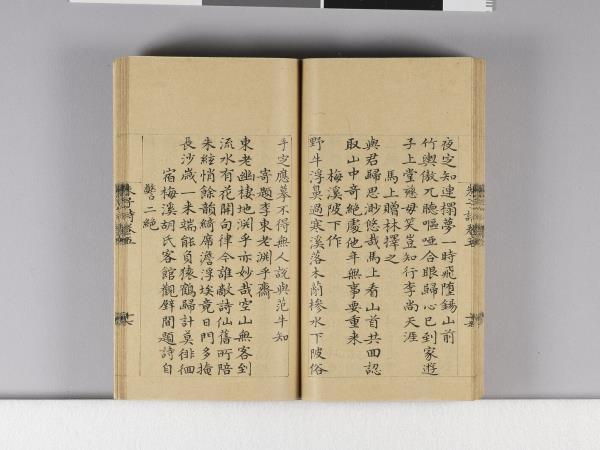 夜定知連榻夢一時飛墮錫山前
竹輿傲兀聽嘔啞合眼歸心已到家遊
子上堂慈母笑豈知行李尚天涯
馬上贈林擇之
與君歸思渺悠哉馬上看山首共回認
取山中奇絕處他年無事要重來
梅溪陂下作
野牛浮鼻過寒溪落木蘭橑水下陂俗
手定應摹不得無人說與范牛知
寄題李東老淵乎齋
東老幽棲地淵乎亦妙哉空山無客到
流水有花開向律今誰敵詩仙舊所陪
朱絃悄餘韻綺席澹浮埃竟日門多掩
長沙歲一来端能負猿鶴歸計莫徘徊
宿梅溪胡氏客館觀壁間題詩自
警二絕